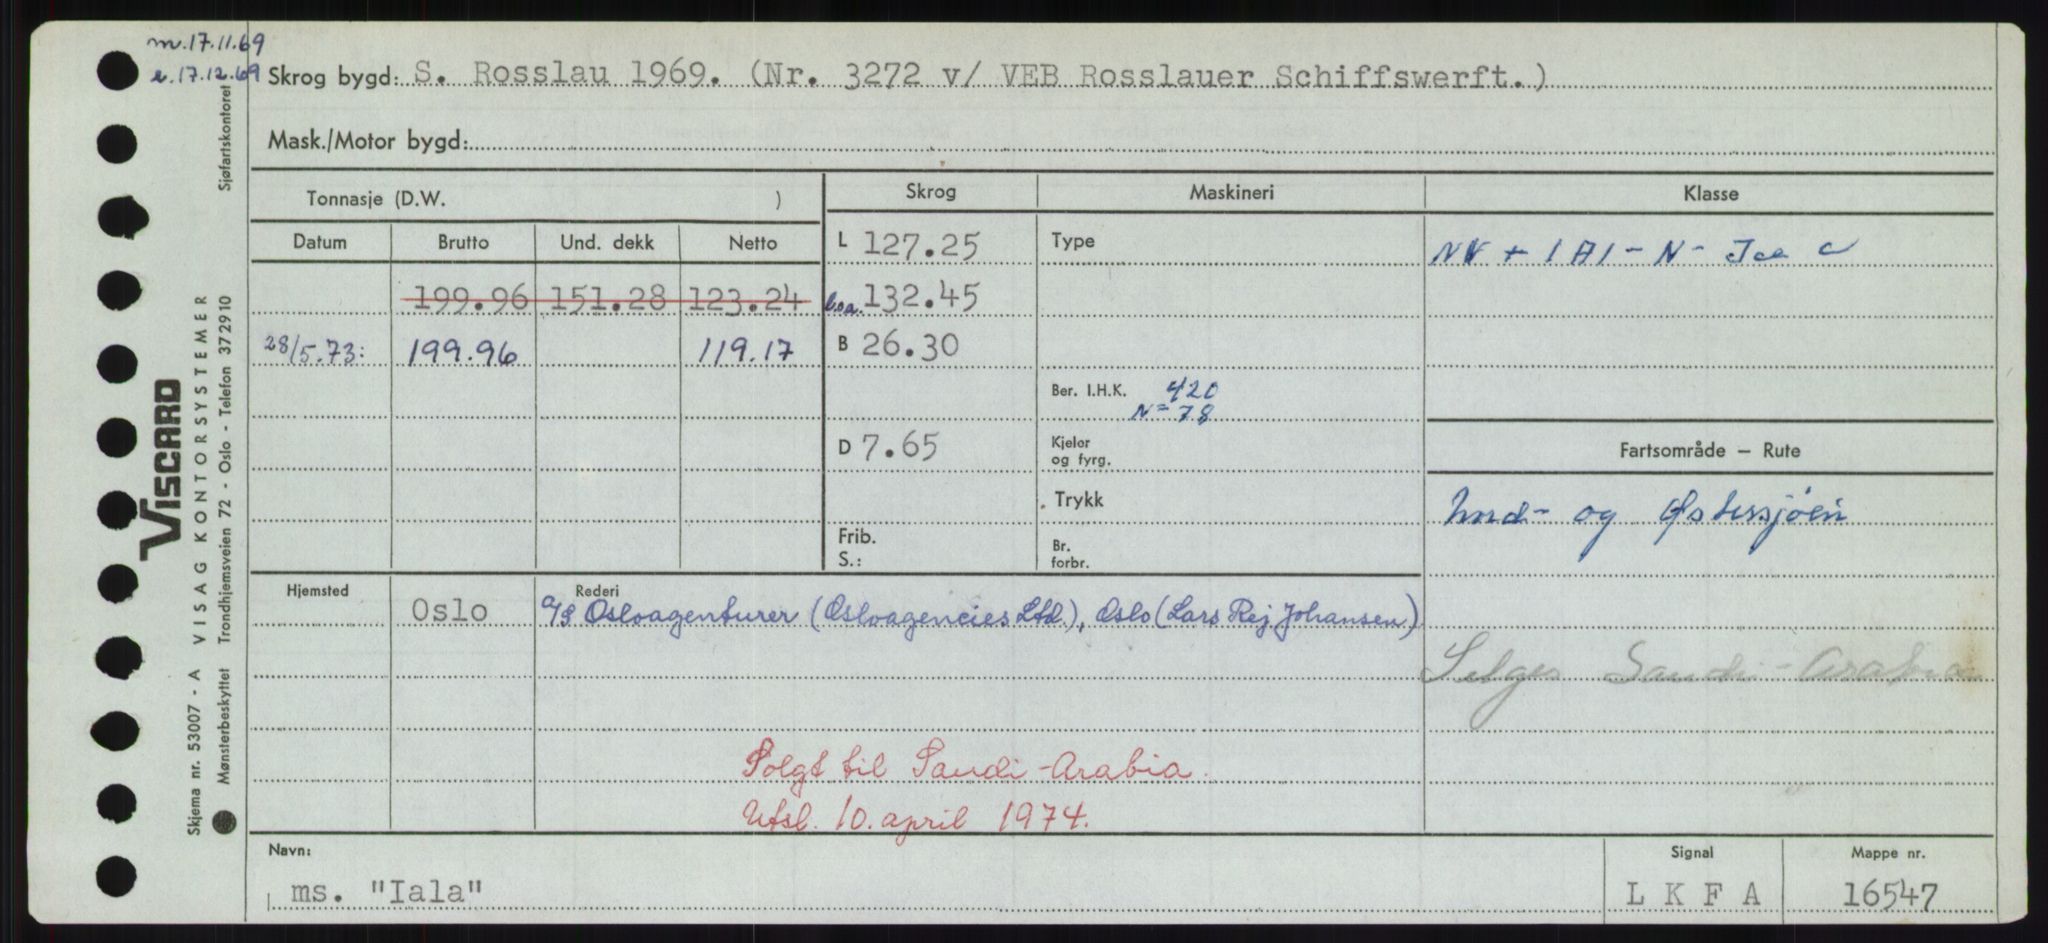 m.17.11.69
e.17.12.69
Skrog bygd: S. Rosslau 1969. (Nr. 3272 v/ VEB Rosslauer Schiffswerft.)
Mask./Motor bygd:
Tonnasje (D.W. )
Skrog Maskineri Klasse
Datum Brutto Und. dekk Netto
L 127.25 Type NV + 1A1 - N - Ice C
199.96 151.28 123.24 l.o.a. 132.45
28/5.73: 199.96 119.17 B 26.30
Ber. I.H.K. 420
N= 78
D 7.65 Kjeler og fyrg.
Fartsområde — Rute
Trykk
Nord- og Østersjøen
Frib.
S.:
Br. forbr.
Hjemsted Rederi
Oslo A/S Osloagenturer (Osloagencies Ltd), Oslo (Lars Rej Johansen)
Selges Saudi-Arabia
Solgt til Saudi-Arabia.
Utsl. 10. april 1974.
Navn: Signal Mappe nr.
ms. "Iala" L K F A 16547
VISCARD
VISAG KONTORSYSTEMER
Sjøfartskontoret
Trondhjemsveien 72 - Oslo - Telefon 372910
Skjema nr. 53007 - A
Mønsterbeskyttet